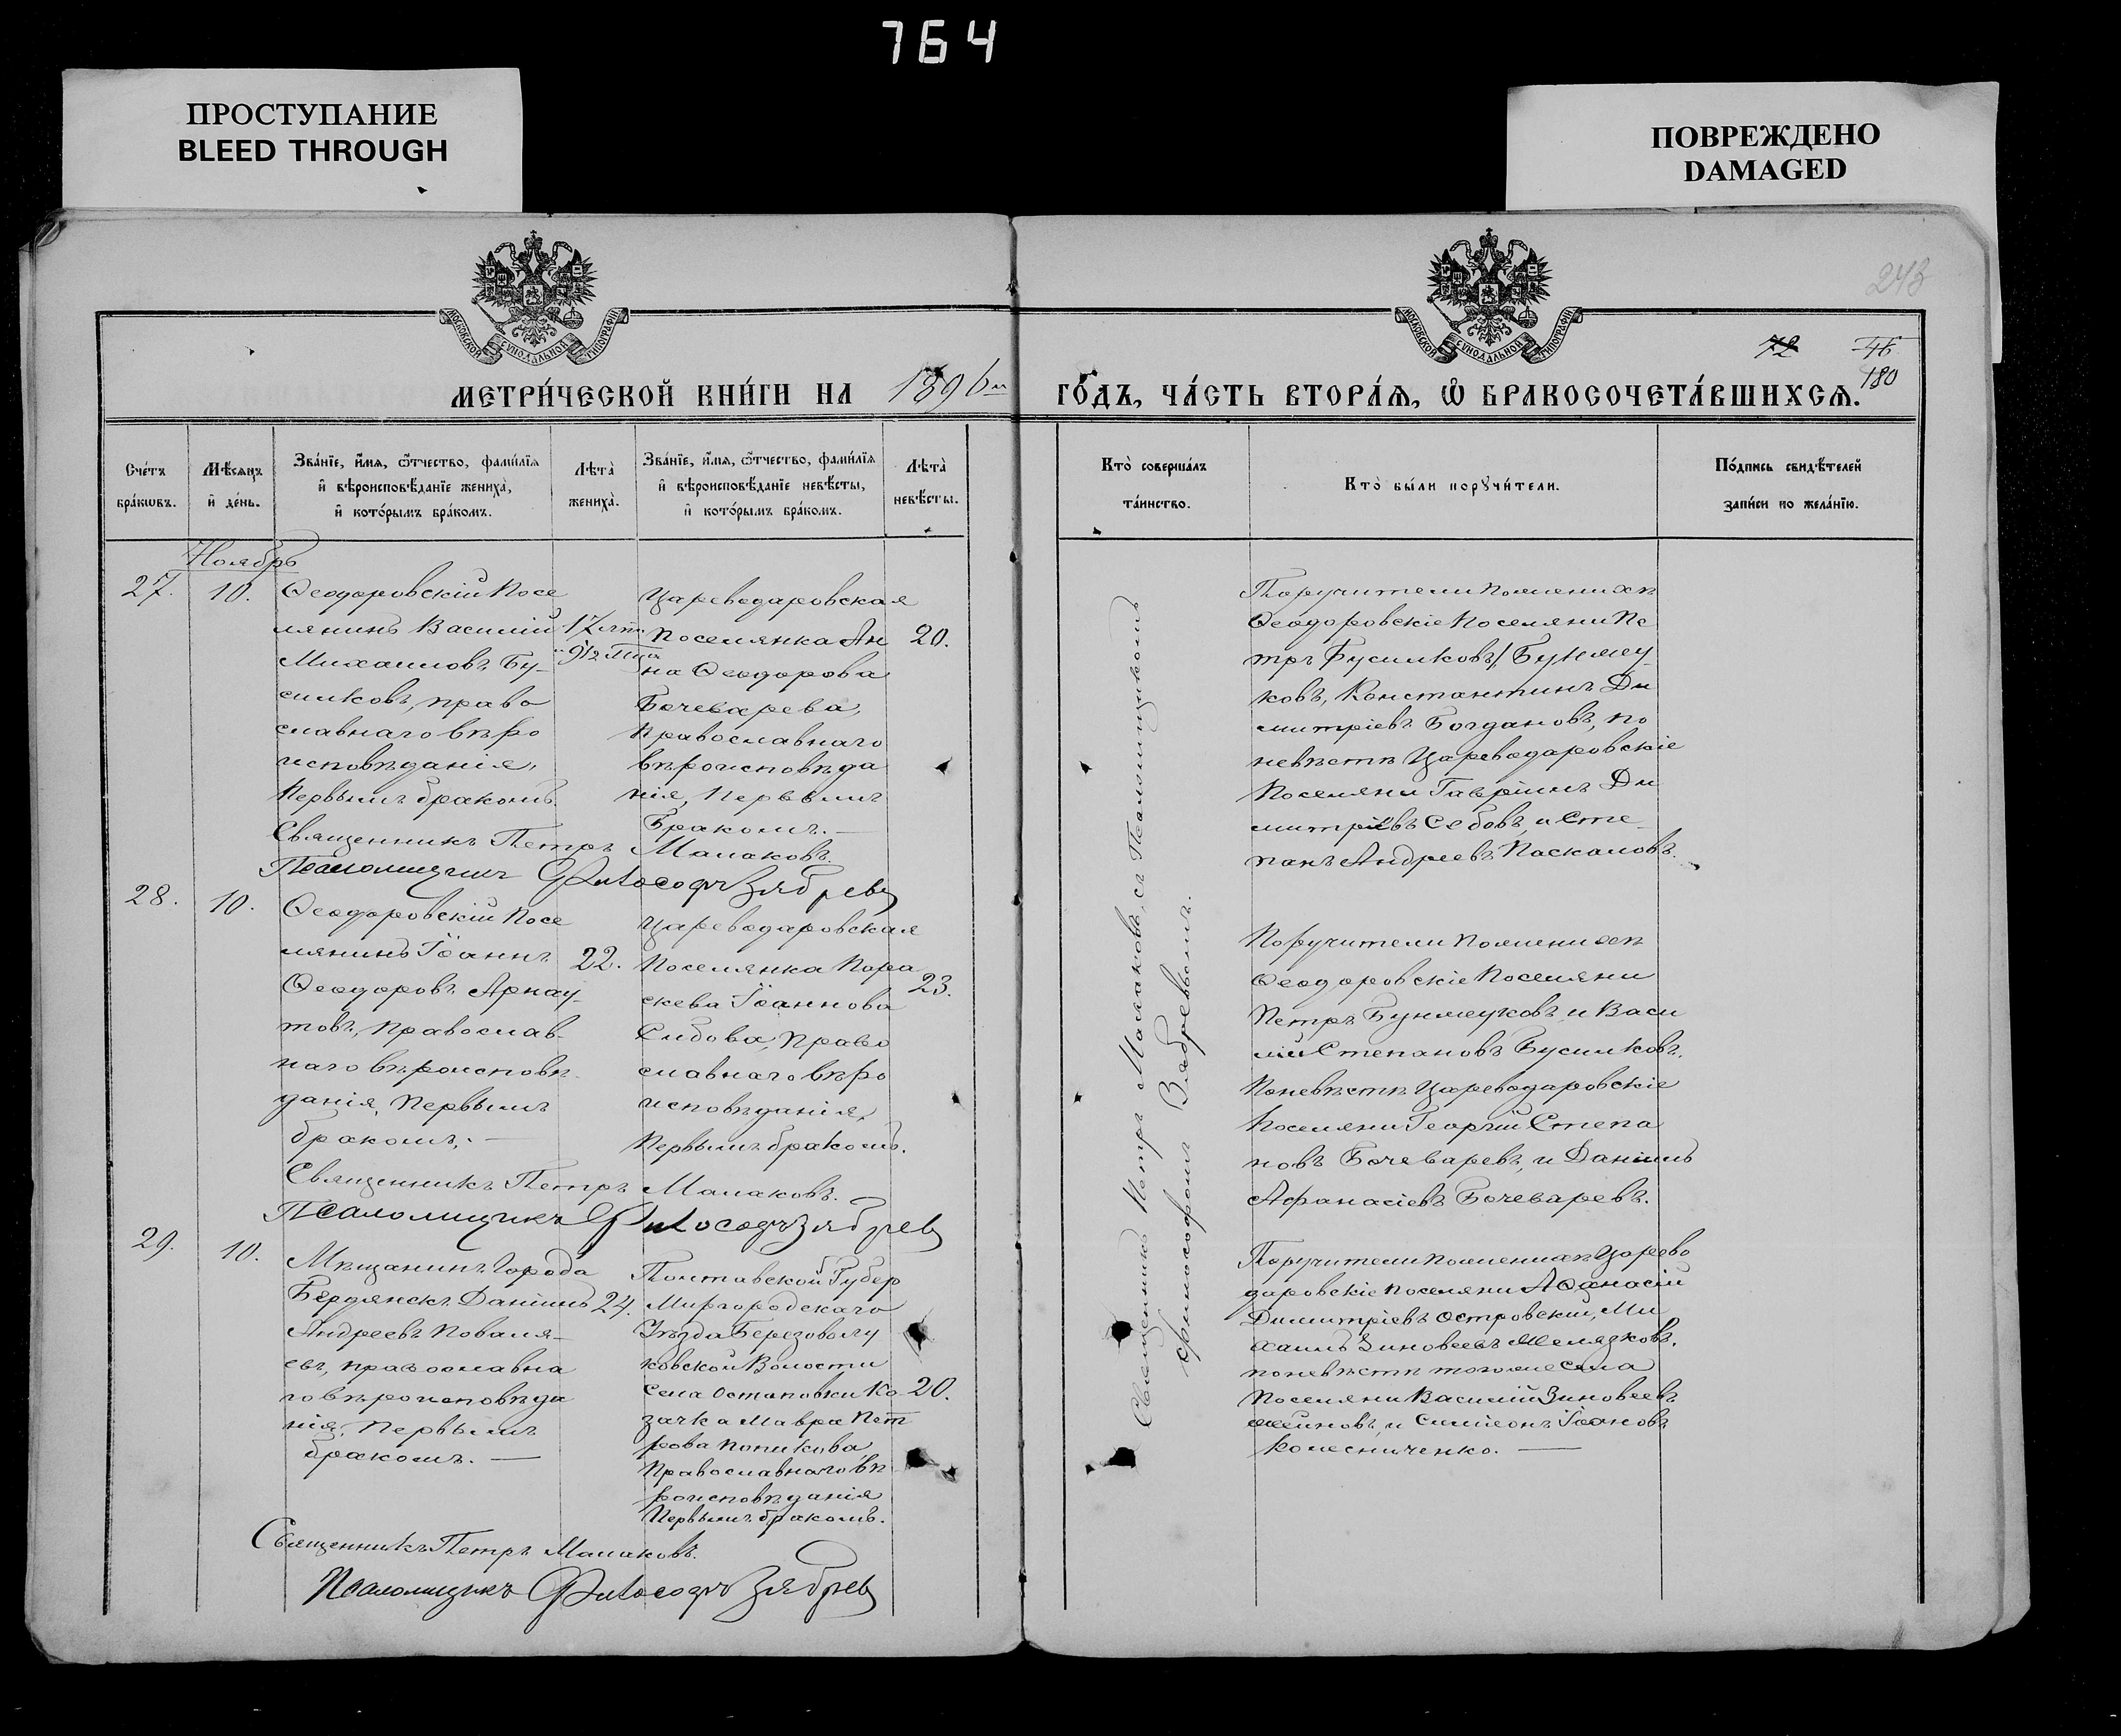 764
ПРОСТУПАНИЕ
BLEED THROUGH
ПОВРЕЖДЕНО
DAMAGED
243
МОСКОВСКОЙ СѴНОДАЛЬНОЙ ТИПОГРАФІИ
МОСКОВСКОЙ СѴНОДАЛЬНОЙ ТИПОГРАФІИ
72 46
180
МЕТРИ́ЧЕСКОЙ КНИ́ГИ НА 1896 й ГО́ДЪ, ЧА́СТЬ ВТОРА́Ѧ, Ѡ҆ БРАКОСОЧЕТА́ВШИХСѦ.
Сче́тъ бра́кѡвъ.
Мѣ́сѧцъ и҆ де́нь.
Зва́нїе, и҆́мѧ, ѻ҆́тчество, фами́лїѧ
и҆ вѣроисповѣ́данїе жениха̀,
и҆ кото́рымъ бра́комъ.
Лѣта̀ жениха̀.
Зва́нїе, и҆́мѧ, ѻ҆́тчество, фами́лїѧ
и҆ вѣроисповѣ́данїе невѣ́сты,
и҆ кото́рымъ бра́комъ.
Лѣта̀ невѣ́сты.
Кто̀ соверша́лъ та́инство.
Кто̀ бы́ли порꙋчи́тели.
По́дпись свидѣ́телей за́писи по жела́нїю.
Ноябрь
27. 10.
Ѳеодоровскій посе
лянинъ Василій
Михаиловъ Бу-
силковъ, право
славнаго вѣро
исповѣданія,
первымъ бракомъ.
17 лѣт.
9 1/2 мѣц
Цареводаровская
поселянка Ан
на Ѳеодорова
Бочеварева,
православнаго
вѣроисповѣда
нія, первымъ
бракомъ. —
20.
Священникъ Петръ Малаковъ.
Псаломщикъ Философъ Зябрев
Поручители по женихѣ
Ѳеодоровскіе поселяни Пе
тръ Бунжу
ковъ, Константинъ Ди
митріевъ Богдановъ, по
невѣстѣ Цареводаровскіе
поселяни Гавріилъ Ди
митріевъ Себовъ, и Сте
панъ Андреевъ Паскаловъ.
28. 10.
Ѳеодоровскій посе
лянинъ Іоаннъ
Ѳеодоровъ Арнау-
товъ, православ-
наго вѣроисповѣ-
данія, первымъ
бракомъ. —
22.
Цареводаровская
поселянка Пара
скева Іоаннова
Сибова, право
славнаго вѣро
исповѣданія,
первымъ бракомъ.
23.
Священникъ Петръ Малаковъ.
Псаломщикъ Философъ Зябрев
Поручители по женихѣ
Ѳеодоровскіе поселяни
Петръ и Васи
лій Степановъ Бусилковъ,
по невѣстѣ Цареводаровскіе
поселяни Георгій Степа
новъ Бочеваревъ, и Даніилъ
Афанасіевъ Бочеваревъ.
29. 10.
Мѣщанинъ города
Бердянскъ Даніилъ
Андреевъ Поваля-
евъ, православна
го вѣроисповѣда
нія, первымъ
бракомъ. —
24.
Полтавской Губер
Миргородскаго
Уѣзда Березовалу
ковской Волости
села Остаповки ко
зачка Мавра Пет
рова Попикова
православнаго вѣ
роисповѣданія
первымъ бракомъ.
20.
Священникъ Петръ Малаковъ.
Псаломщикъ Философъ Зябрев
Поручители по женихѣ Царево
даровскіе поселяни Аѳанасій
Димитріевъ Островский, Ми
хаилъ Зиновеевъ Желязковъ,
по невѣстѣ того же села
поселяни Василій Зиновеевъ
и Симеонъ Іоановъ
Колесниченко. —
Священникъ Петръ Малаковъ, съ Псаломщикомъ
Философомъ Зябревымъ.